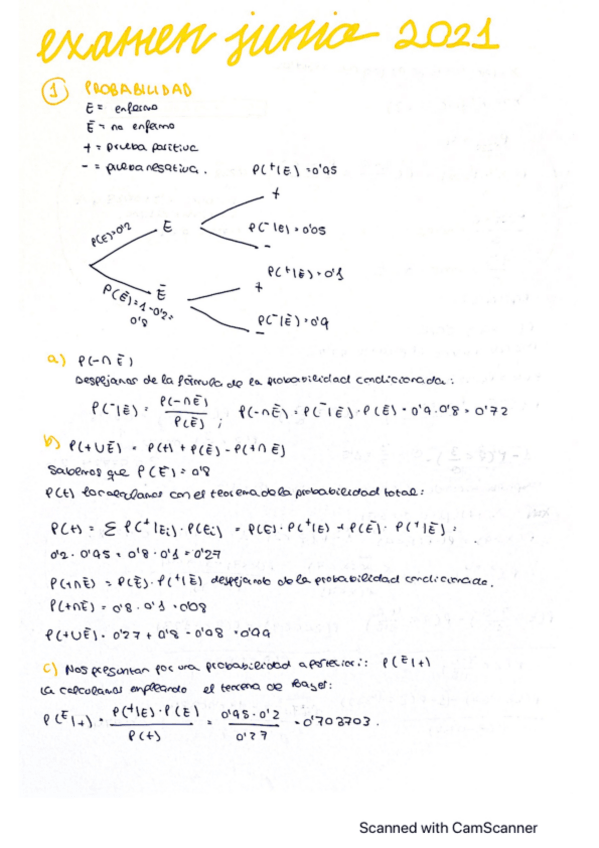 examen junio 2021
① PROBABILIDAD
E = enfermo
Ē = no enfermo
+ = prueba positiva
- = prueba negativa.
P(+|E) = 0'95
+
P(E)=0'2
E
P(-|E) = 0'05
-
P(+|Ē) = 0'1
+
Ē
P(Ē)=1-0'2=
0'8
P(-|Ē) = 0'9
-
a) P(-∩Ē)
Despejamos de la fórmula de la probabilidad condicionada:
P(-|Ē) = P(-∩Ē) / P(Ē) ; P(-∩Ē) = P(-|Ē)·P(Ē) = 0'9·0'8 = 0'72
b) P(+∪Ē) = P(+) + P(Ē) - P(+∩Ē)
Sabemos que P(Ē) = 0'8
P(+) la calculamos con el teorema de la probabilidad total:
P(+) = Σ P(+|Ei)·P(Ei) = P(E)·P(+|E) + P(Ē)·P(+|Ē) =
0'2·0'95 + 0'8·0'1 = 0'27
P(+∩Ē) = P(Ē)·P(+|Ē) despejando de la probabilidad condicionada.
P(+∩Ē) = 0'8·0'1 = 0'08
P(+∪Ē) = 0'27 + 0'8 - 0'08 = 0'99
c) Nos preguntan por una probabilidad a posteriori: P(E|+)
La calculamos empleando el teorema de Bayes:
P(E|+) = P(+|E)·P(E) / P(+) = 0'95·0'2 / 0'27 = 0'703703.
Scanned with CamScanner